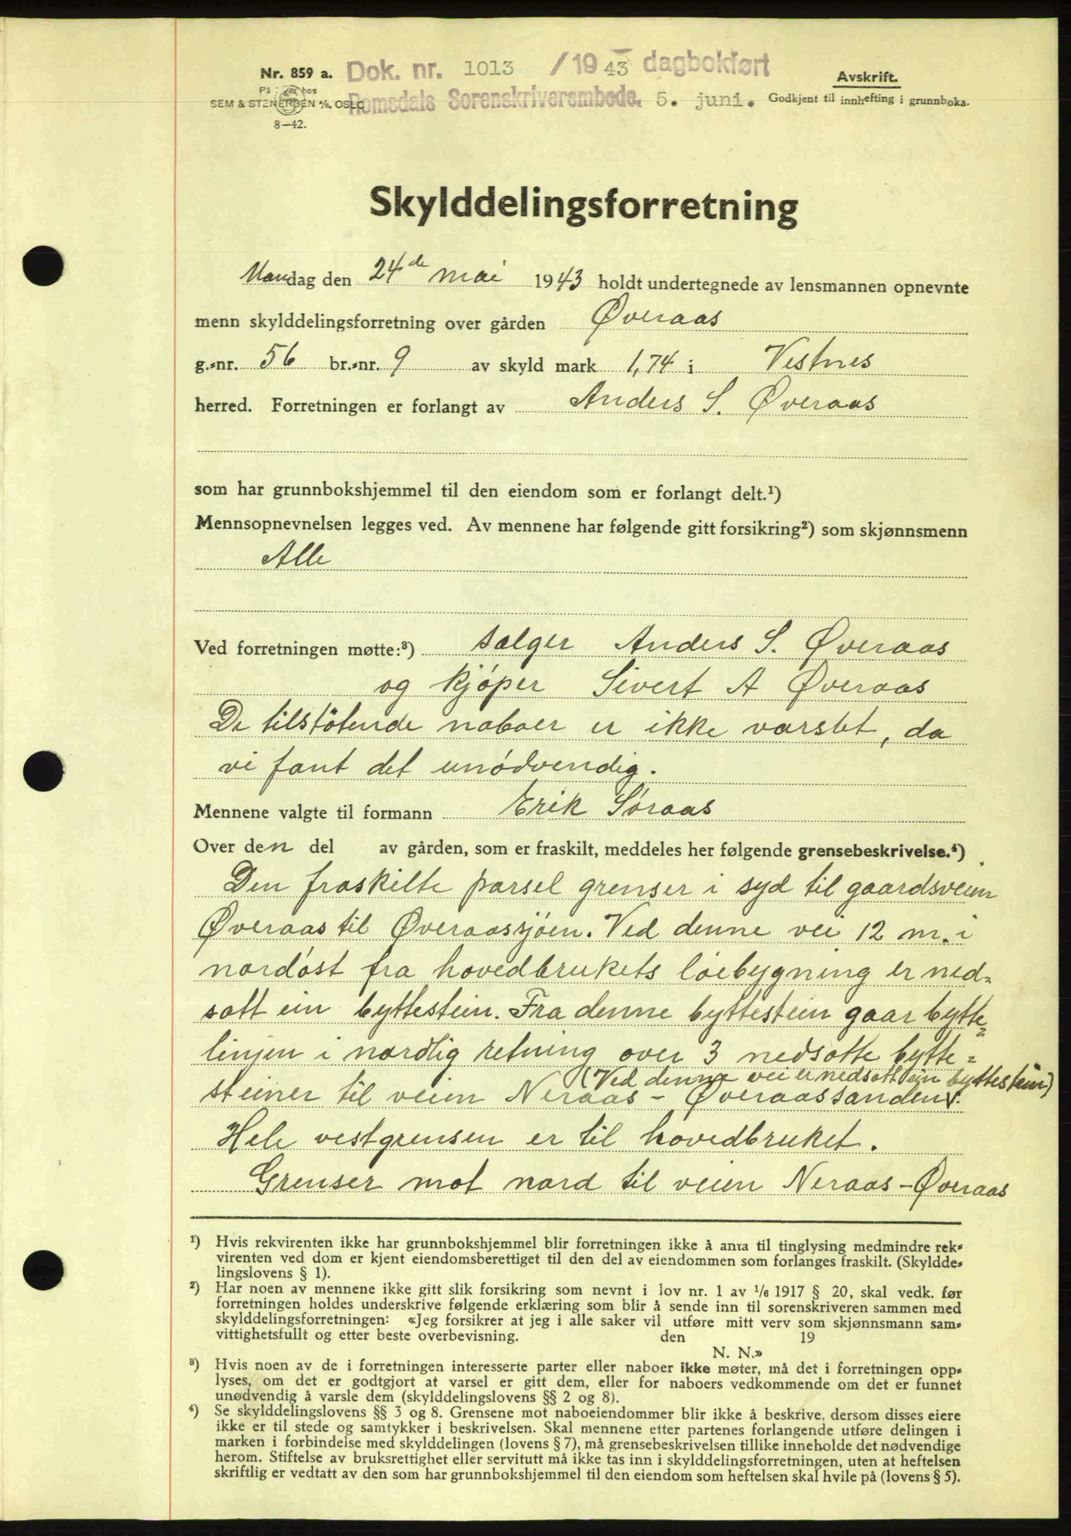 Nr. 859 a. Dok. nr. 1013 /19 43 dagbokført
Avskrift.
SEM & STENERSEN A/S, OSLO Romsdals Sorenskriverembede, 5. juni. Godkjent til innhefting i grunnboka.
8-42.
Skylddelingsforretning
Mandag den 24de mai 1943 holdt undertegnede av lensmannen opnevnte
menn skylddelingsforretning over gården Øveraas
g.-nr. 56 br.-nr. 9 av skyld mark 1,74 i Vestnes
herred. Forretningen er forlangt av Anders S. Øveraas
som har grunnbokshjemmel til den eiendom som er forlangt delt.¹)
Mennsopnevnelsen legges ved. Av mennene har følgende gitt forsikring²) som skjønnsmenn
Alle
Ved forretningen møtte:³) sælger Anders S. Øveraas
og kjøper Sivert A Øveraas
De tilstøtende naboer er ikke varslet, da
vi fant det unødvendig.
Mennene valgte til formann Erik Søraas
Over den del av gården, som er fraskilt, meddeles her følgende grensebeskrivelse.⁴)
Den fraskilte parsel grenser i syd til gaardsveien
Øveraas til Øveraassjøen. Ved denne vei 12 m. i
nordøst fra hovedbrukets løebygning er ned-
satt ein byttestein. Fra denne byttestein gaar bytte=
linjen i nordlig retning over 3 nedsatte bytte=
(Ved denne vei er nedsatt ein byttestein)
steiner til veien Neraas - Øveraassanden.
Hele vestgrensen er til hovedbruket.
Grenser mot nord til veien Neraas - Øveraas
¹) Hvis rekvirenten ikke har grunnbokshjemmel blir forretningen ikke å anta til tinglysing medmindre rek-
virenten ved dom er kjent eiendomsberettiget til den del av eiendommen som forlanges fraskilt. (Skyldde-
lingslovens § 1).
²) Har noen av mennene ikke gitt slik forsikring som nevnt i lov nr. 1 av 1/6 1917 § 20, skal vedk. før
forretningen holdes underskrive følgende erklæring som blir å sende inn til sorenskriveren sammen med
skylddelingsforretningen: «Jeg forsikrer at jeg i alle saker vil utføre mitt verv som skjønnsmann sam-
vittighetsfullt og etter beste overbevisning. den 19
N. N.»
³) Hvis noen av de i forretningen interesserte parter eller naboer ikke møter, må det i forretningen opp-
lyses, om det er godtgjort at varsel er gitt dem, eller for naboers vedkommende om det er funnet
unødvendig å varsle dem (skylddelingslovens §§ 2 og 8).
⁴) Se skylddelingslovens §§ 3 og 8. Grensene mot naboeiendommer blir ikke å beskrive, dersom disses eiere
ikke er til stede og samtykker i beskrivelsen. Skal mennene etter partenes forlangende utføre delingen i
marken i forbindelse med skylddelingen (lovens § 7), må grensebeskrivelsen tillike inneholde det nødvendige
herom. Stiftelse av bruksrettighet eller servitutt må ikke tas inn i skylddelingsforretningen, uten at heftelsen
skriftlig er vedtatt av den som har grunnbokshjemmel til den eiendom som heftelsen skal hvile på (lovens § 5).